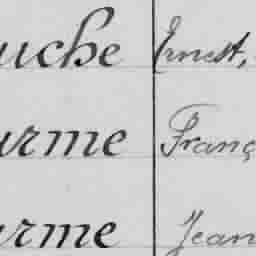 uche Ernest,
urme Franç
urme Jean